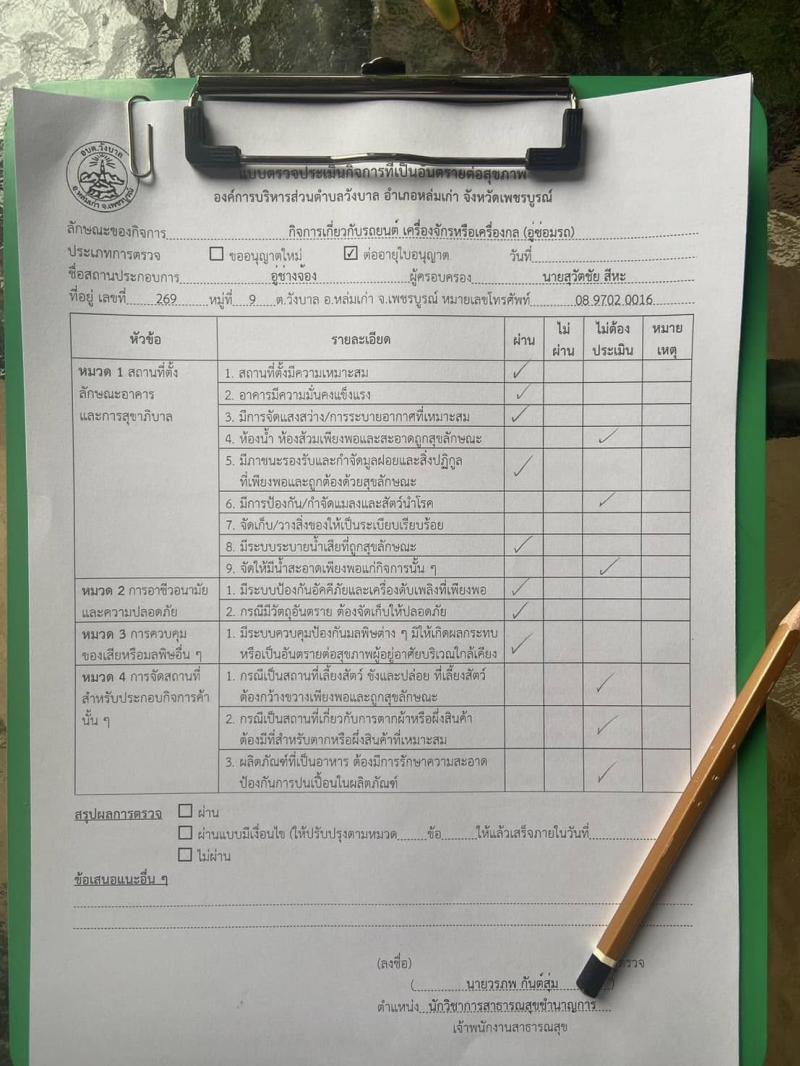 อบต.วังบาล
อ.หล่มเก่า จ.เพชรบูรณ์
แบบตรวจประเมินกิจการที่เป็นอันตรายต่อสุขภาพ
องค์การบริหารส่วนตำบลวังบาล อำเภอหล่มเก่า จังหวัดเพชรบูรณ์
ลักษณะของกิจการ กิจการเกี่ยวกับรถยนต์ เครื่องจักรหรือเครื่องกล (อู่ซ่อมรถ)
ประเภทการตรวจ ☐ ขออนุญาตใหม่ ☑ ต่ออายุใบอนุญาต วันที่
ชื่อสถานประกอบการ อู่ช่างจ้อง ผู้ครอบครอง นายสุวัตชัย สีหะ
ที่อยู่ เลขที่ 269 หมู่ที่ 9 ต.วังบาล อ.หล่มเก่า จ.เพชรบูรณ์ หมายเลขโทรศัพท์ 08 9702 0016
หัวข้อ รายละเอียด ผ่าน ไม่ผ่าน ไม่ต้องประเมิน หมายเหตุ
หมวด 1 สถานที่ตั้ง
ลักษณะอาคาร
และการสุขาภิบาล
1. สถานที่ตั้งมีความเหมาะสม ✓
2. อาคารมีความมั่นคงแข็งแรง ✓
3. มีการจัดแสงสว่าง/การระบายอากาศที่เหมาะสม ✓
4. ห้องน้ำ ห้องส้วมเพียงพอและสะอาดถูกสุขลักษณะ ✓
5. มีภาชนะรองรับและกำจัดมูลฝอยและสิ่งปฏิกูล ✓
ที่เพียงพอและถูกต้องด้วยสุขลักษณะ
6. มีการป้องกัน/กำจัดแมลงและสัตว์นำโรค ✓
7. จัดเก็บ/วางสิ่งของให้เป็นระเบียบเรียบร้อย
8. มีระบบระบายน้ำเสียที่ถูกสุขลักษณะ ✓
9. จัดให้มีน้ำสะอาดเพียงพอแก่กิจการนั้น ๆ ✓
หมวด 2 การอาชีวอนามัย
และความปลอดภัย
1. มีระบบป้องกันอัคคีภัยและเครื่องดับเพลิงที่เพียงพอ ✓
2. กรณีมีวัตถุอันตราย ต้องจัดเก็บให้ปลอดภัย ✓
หมวด 3 การควบคุม
ของเสียหรือมลพิษอื่น ๆ
1. มีระบบควบคุมป้องกันมลพิษต่าง ๆ มิให้เกิดผลกระทบ ✓
หรือเป็นอันตรายต่อสุขภาพผู้อยู่อาศัยบริเวณใกล้เคียง
หมวด 4 การจัดสถานที่
สำหรับประกอบกิจการค้า
นั้น ๆ
1. กรณีเป็นสถานที่เลี้ยงสัตว์ ขังและปล่อย ที่เลี้ยงสัตว์ ✓
ต้องกว้างขวางเพียงพอและถูกสุขลักษณะ
2. กรณีเป็นสถานที่เกี่ยวกับการตากผ้าหรือผึ่งสินค้า ✓
ต้องมีที่สำหรับตากหรือผึ่งสินค้าที่เหมาะสม
3. ผลิตภัณฑ์ที่เป็นอาหาร ต้องมีการรักษาความสะอาด ✓
ป้องกันการปนเปื้อนในผลิตภัณฑ์
สรุปผลการตรวจ ☐ ผ่าน
☐ ผ่านแบบมีเงื่อนไข (ให้ปรับปรุงตามหมวด ข้อ ให้แล้วเสร็จภายในวันที่
☐ ไม่ผ่าน
ข้อเสนอแนะอื่น ๆ
(ลงชื่อ) ตรวจ
( นายวรภพ กันต์สุ่ม )
ตำแหน่ง นักวิชาการสาธารณสุขชำนาญการ
เจ้าพนักงานสาธารณสุข